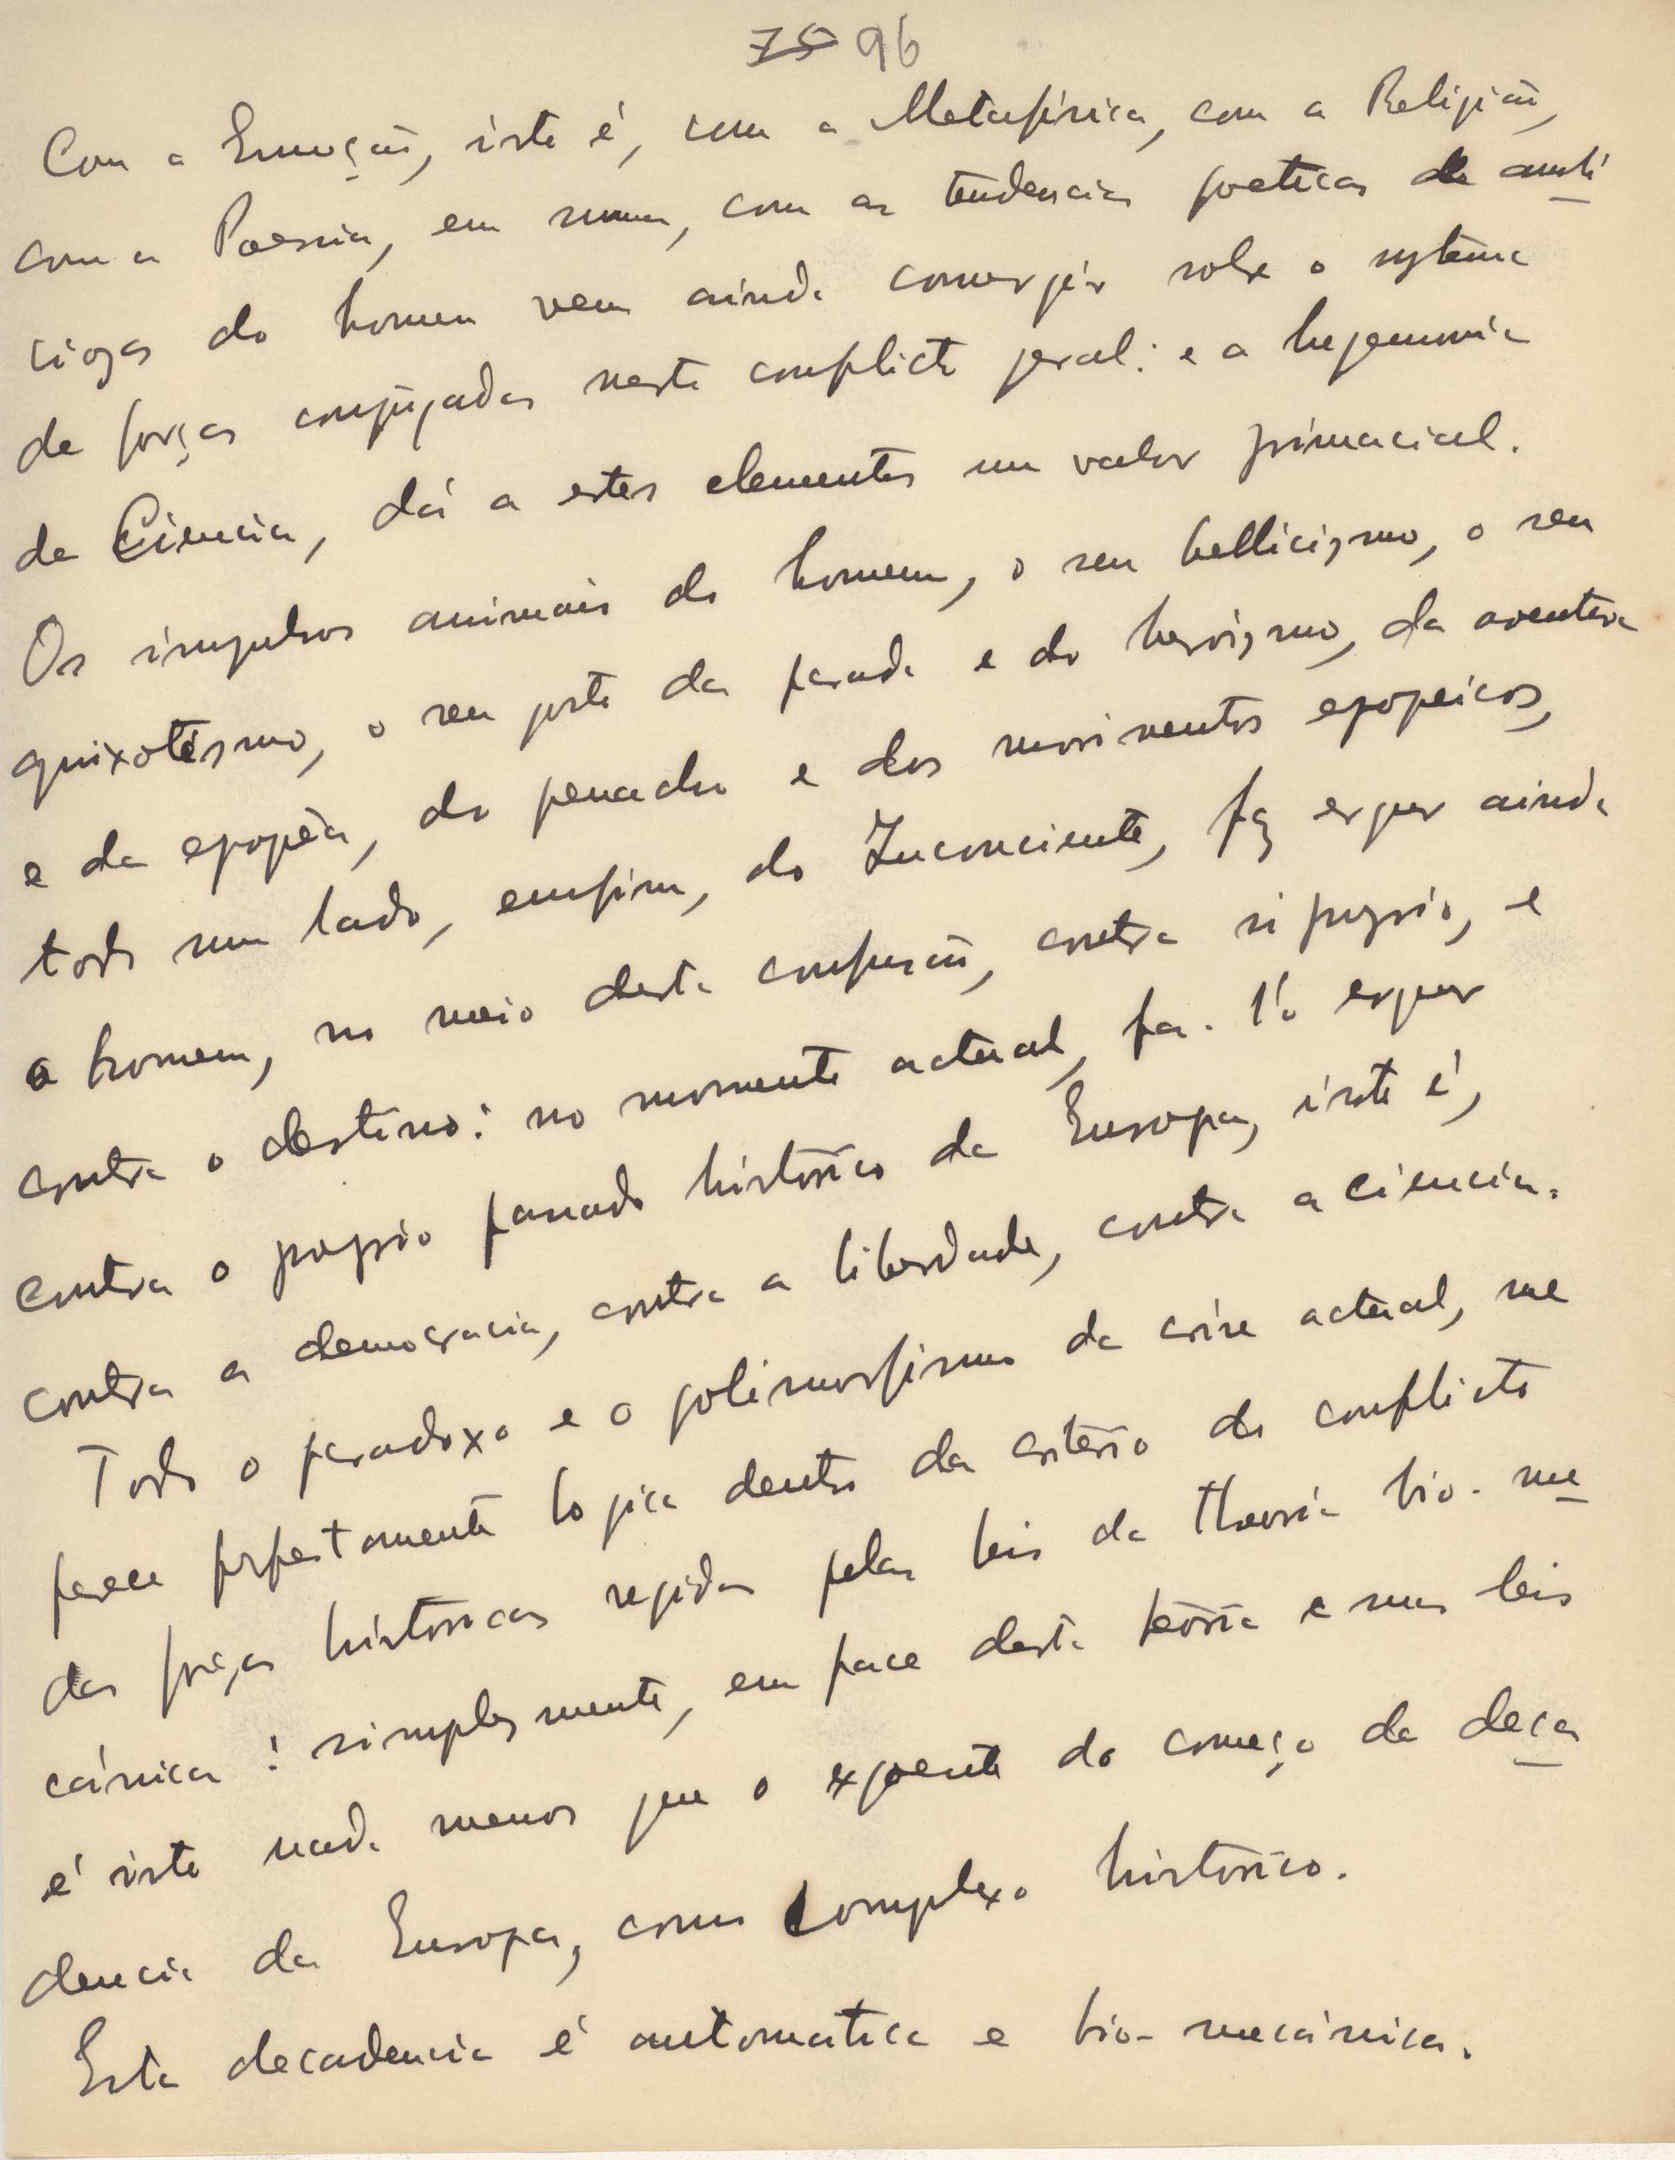 75 96
Com a Emoção, isto é, com a Metafísica, com a Religião,
com a Poesia, em suma, com as tendencias poeticas de ambi
ciosas do homem vem ainda convergir sobre o systema
de forças conjugadas neste conflicto geral: e a hegemonia
da Ciencia, dá a estes elementos um valor primacial.
Os impulsos animais do homem, o seu bellicismo, o seu
quixotismo, o seu gosto da parada e do heroismo, da aventura
e da epopêa, do penacho e dos movimentos epopeicos,
todo um lado, emfim, do Inconciente, faz erguer ainda
o homem, no meio desta confusão, contra si proprio, e
contra o destino: no momento actual, fa-l'o erguer
contra o proprio passado historico da Europa, isto é,
contra a democracia, contra a liberdade, contra a ciencia.
Todo o paradoxo e o polimorfismo da crise actual, me
parece perfeitamente logica dentro da criterio do conflicto
das forças historicas regidas pelas leis da theoria bio-me
cánica: simplesmente, em face desta teoria e suas leis
é isto nada menos que o expoente do começo da deca
dencia da Europa, como complexo historico.
Esta decadencia é automatica e bio-mecánica.